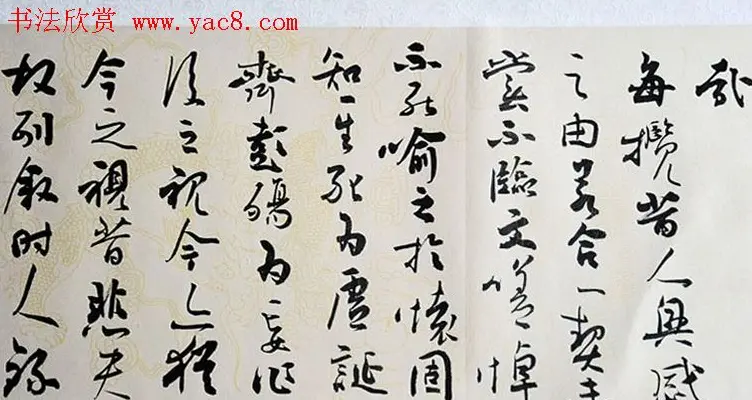 书法欣赏 www.yac8.com
哉
每攬昔人興感
之由若合一契未
嘗不臨文嗟悼
不能喻之於懷固
知一生死為虛誕
齊彭殤為妄作
後之視今亦猶
今之視昔悲夫
故列敘時人錄